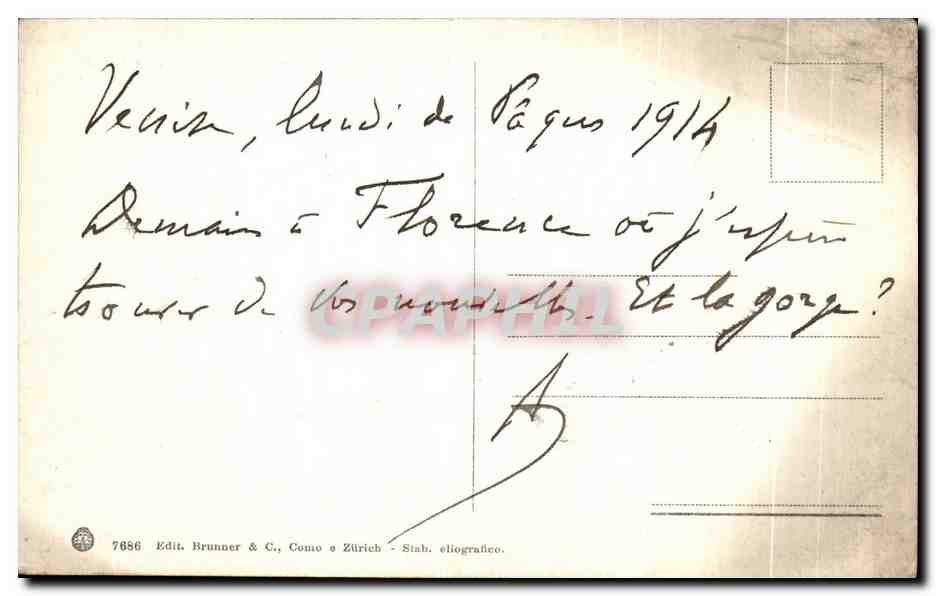 Venise, lundi de Pâques 1914
Demain à Florence où j'espère
trouver de vos nouvelles. Et la gorge?
A
CPAPHIL
7686 Edit. Brunner & C., Como e Zürich - Stab. eliografico.